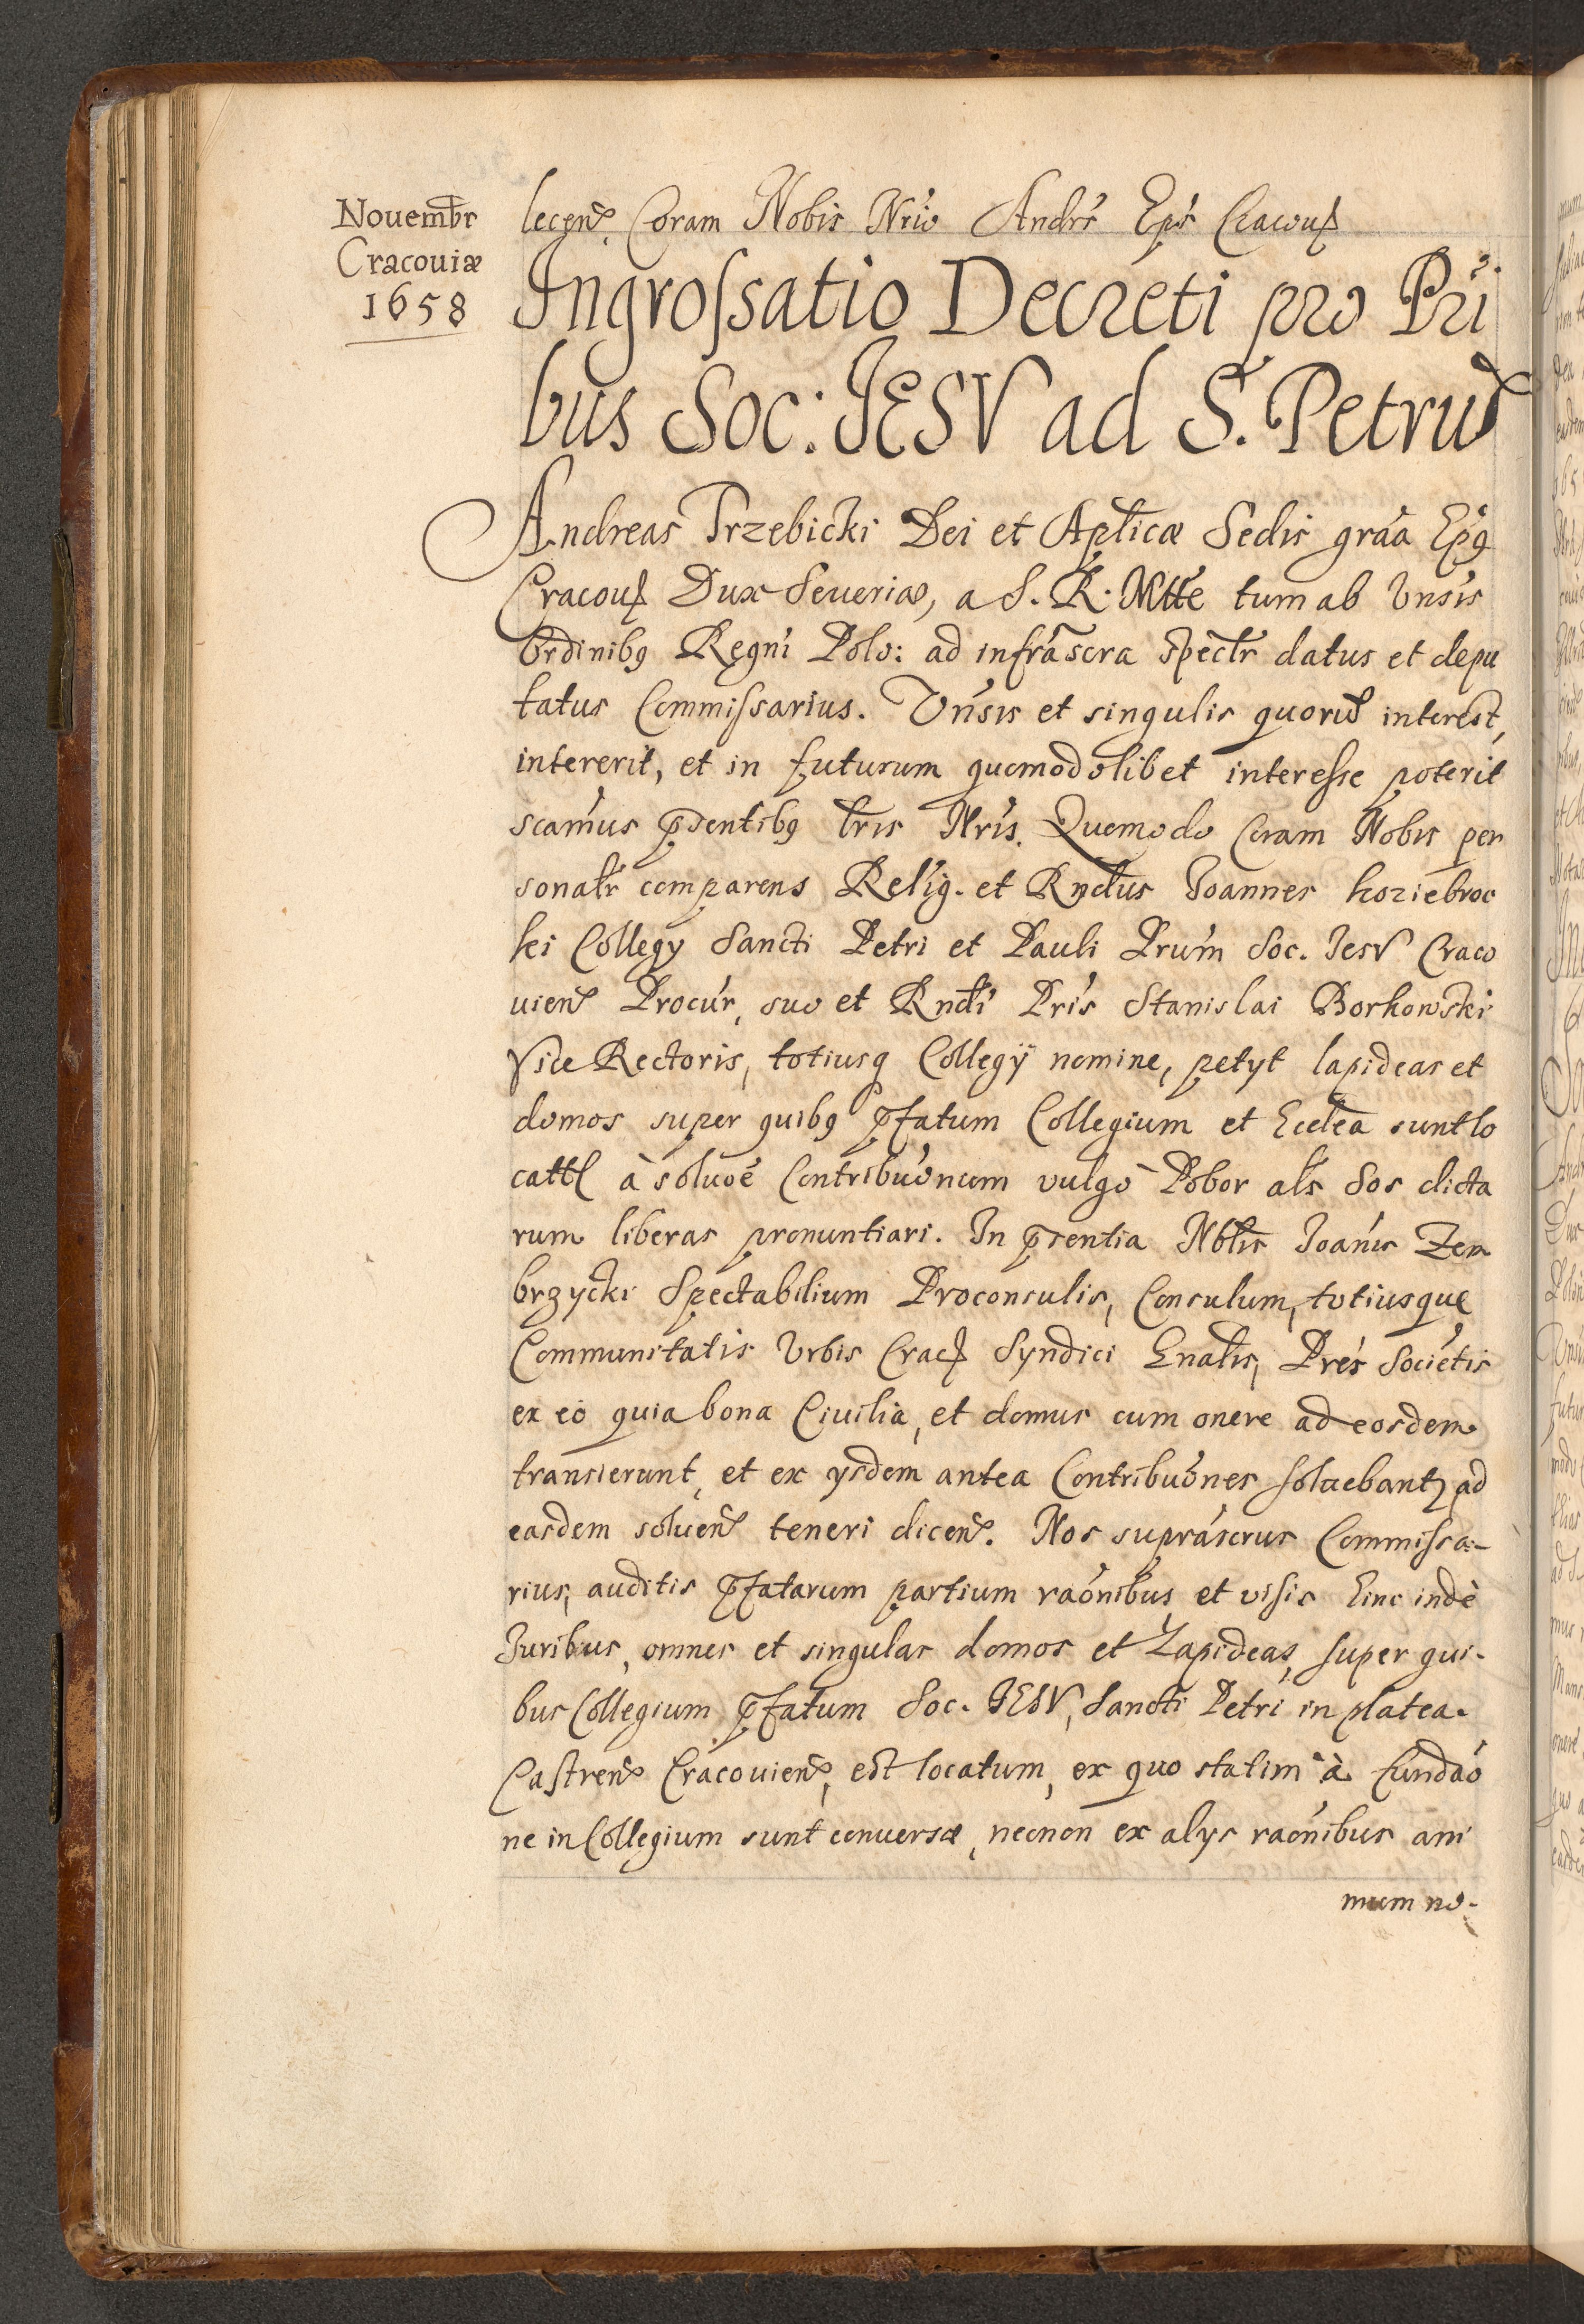 Nouembr
Cracouiæ
1658
Coram Nobis Andrs Epis Cracou
Ingroſsatio Decreti pro Pri
bus Soc: JESV ad S. Petrum
Andreas Trzebicki Dei et Aplicæ Sedis graa Epq
Cracou Dux Seueriæ, a S. R. Mtte tum ab Vnsis
Ordinibq Regni Polo: ad infrascra spectr datus et depu
tatus Commiſsarius. Vnsis et singulis quorum interest,
intererit, et in futurum quomodolibet intereſse poterit
scamus pñsentibq lris Nris. Quomodo Coram Nobis per
sonalr comparens Relig. et Rndus Joannes Koziebroc
ki Collegy Sancti Petri et Pauli Prum Soc. Jesv Craco
uien Procur, suo et Rndi Pris Stanislai Borkowski
Vice Rectoris, totiusq Collegij nomine, petyt lapideas et
domos super quibq pfatum Collegium et Eccleā sunt lo
catæ à soluoe Contribuonum vulgo Pobor als Sos dicta
rum liberas pronuntiari. In psentia Nblis Joanis Zem
brzycki Spectabilium Proconsulis, Consulum, totiusque
Communitatis Vrbis Crac Syndici Gnalis, Pres Societis
ex eo quia bona Ciuilia, et domus cum onere ad eosdem
transierunt, et ex ysdem antea Contribuones soluebant, ad
easdem soluen teneri dicen. Nos suprascrus Commiſsa-
rius, auditis pfatarum partium raonibus et viſis hinc indè
Juribus, omnes et singulas domos et Lapideas, super qui-
bus Collegium pfatum Soc. JESV, Sancti Petri in platea
Caſtren Cracouien, est locatum, ex quo statim à fundao
ne in Collegium sunt conuersæ, necnon ex alys raonibus ani
mum no-